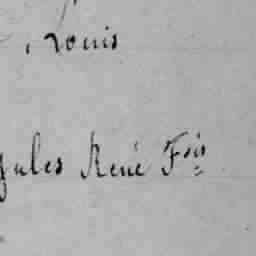 , Louis
Jules René Fois